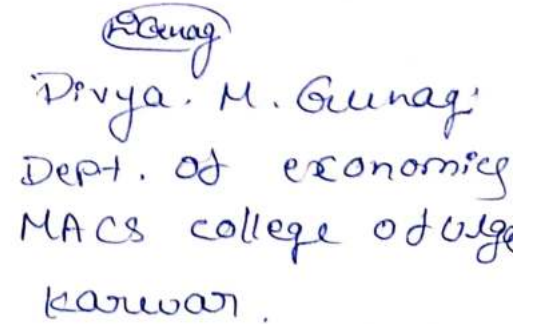 Divya. M. Gunagi
Dept. of economics
MACS college of
Karwar.